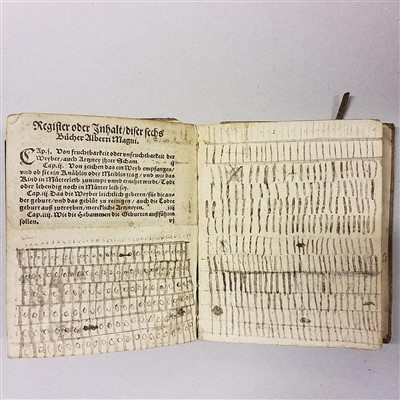 Register oder Inhalt / diser sechs
Bücher Alberti Magni.
CAp.j. Von fruchtbarkeit oder vnfruchtbarkeit der
Weyber / auch Artzney jhrer Scham. ij
Cap.ij. Von zeichen das ein Weyb empfangen /
vnd ob sie ein Knäblin oder Meidlin trag / vnd wie das
Kind in Mütterleib zunimpt vnd ernehrt wirde / Todt
oder lebendig noch in Mütter leib sey.
Cap.iij. Das die Weyber leichtlich geberen / für die
der geburt / vnd das geblüt zu reinigen / auch die Todte
geburt auß zutreyben / merckliche Artzneyen. iiij
Cap.iiij. Wie die Hebammen die Geburten aufführen
sollen. vj